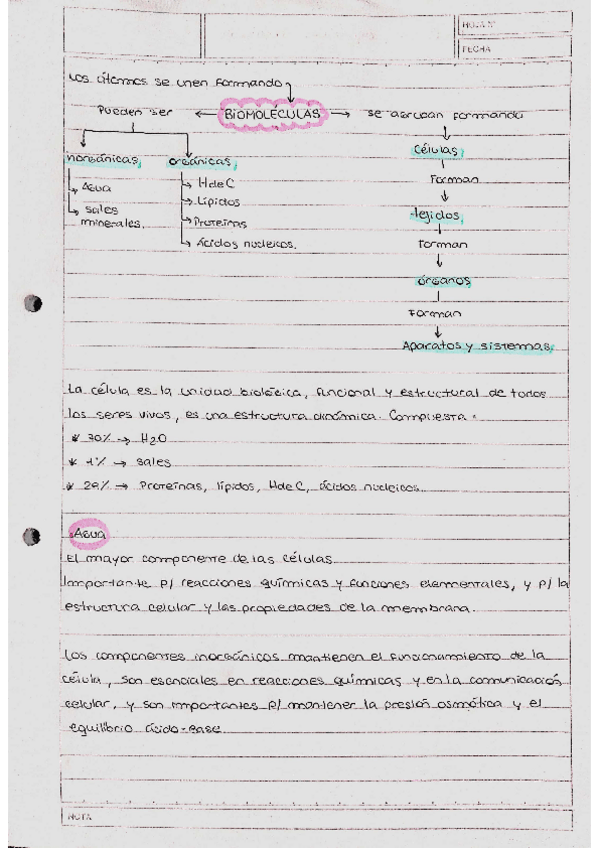 HOJA Nº
FECHA
Los átomos se unen formando
Pueden ser ← BIOMOLÉCULAS → se agrupan formando
Células
inorgánicas orgánicas
Forman
Agua
HdeC
sales minerales.
Lípidos
Proteínas
Ácidos nucleicos.
tejidos
Forman
órganos
Forman
Aparatos y sistemas
La célula es la unidad biológica, funcional y estructural de todos
los seres vivos, es una estructura dinámica. Compuesta:
* 70% → H2O
* 1% → sales
* 29% → Proteínas, lípidos, HdeC, ácidos nucleicos.
Agua
El mayor componente de las células.
Importante p/ reacciones químicas y funciones elementales, y p/ la
estructura celular y las propiedades de la membrana.
Los componentes inorgánicos mantienen el funcionamiento de la
célula, son esenciales en reacciones químicas y en la comunicación
celular, y son importantes p/ mantener la presión osmótica y el
equilibrio ácido-base.
NOTA